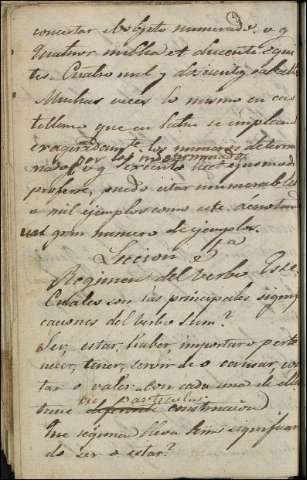 concertar el objeto numerado. v. g.
Quatuor millia et ducenti equi-
tes. Cuatro mil y doscientos caballos
Muchas veces lo mismo en cas-
tellano que en latin se emplean
los numeros determi-
nados por los indeterminados
v. g. sexcenta
proferre, puedo citar innumerables
o mil ejemplos como este
gran numero de ejemplos.
Leccion 5ª
Regimen del verbo
Cuales son las principales signifi-
caciones del verbo Sum?
Ser, estar, haber, importar o perte-
necer, tener, servir de o causar, cos-
tar o valer con cada una de ellas
tiene particular
construccion
Que regimen lleva Sum significan-
do ser o estar?